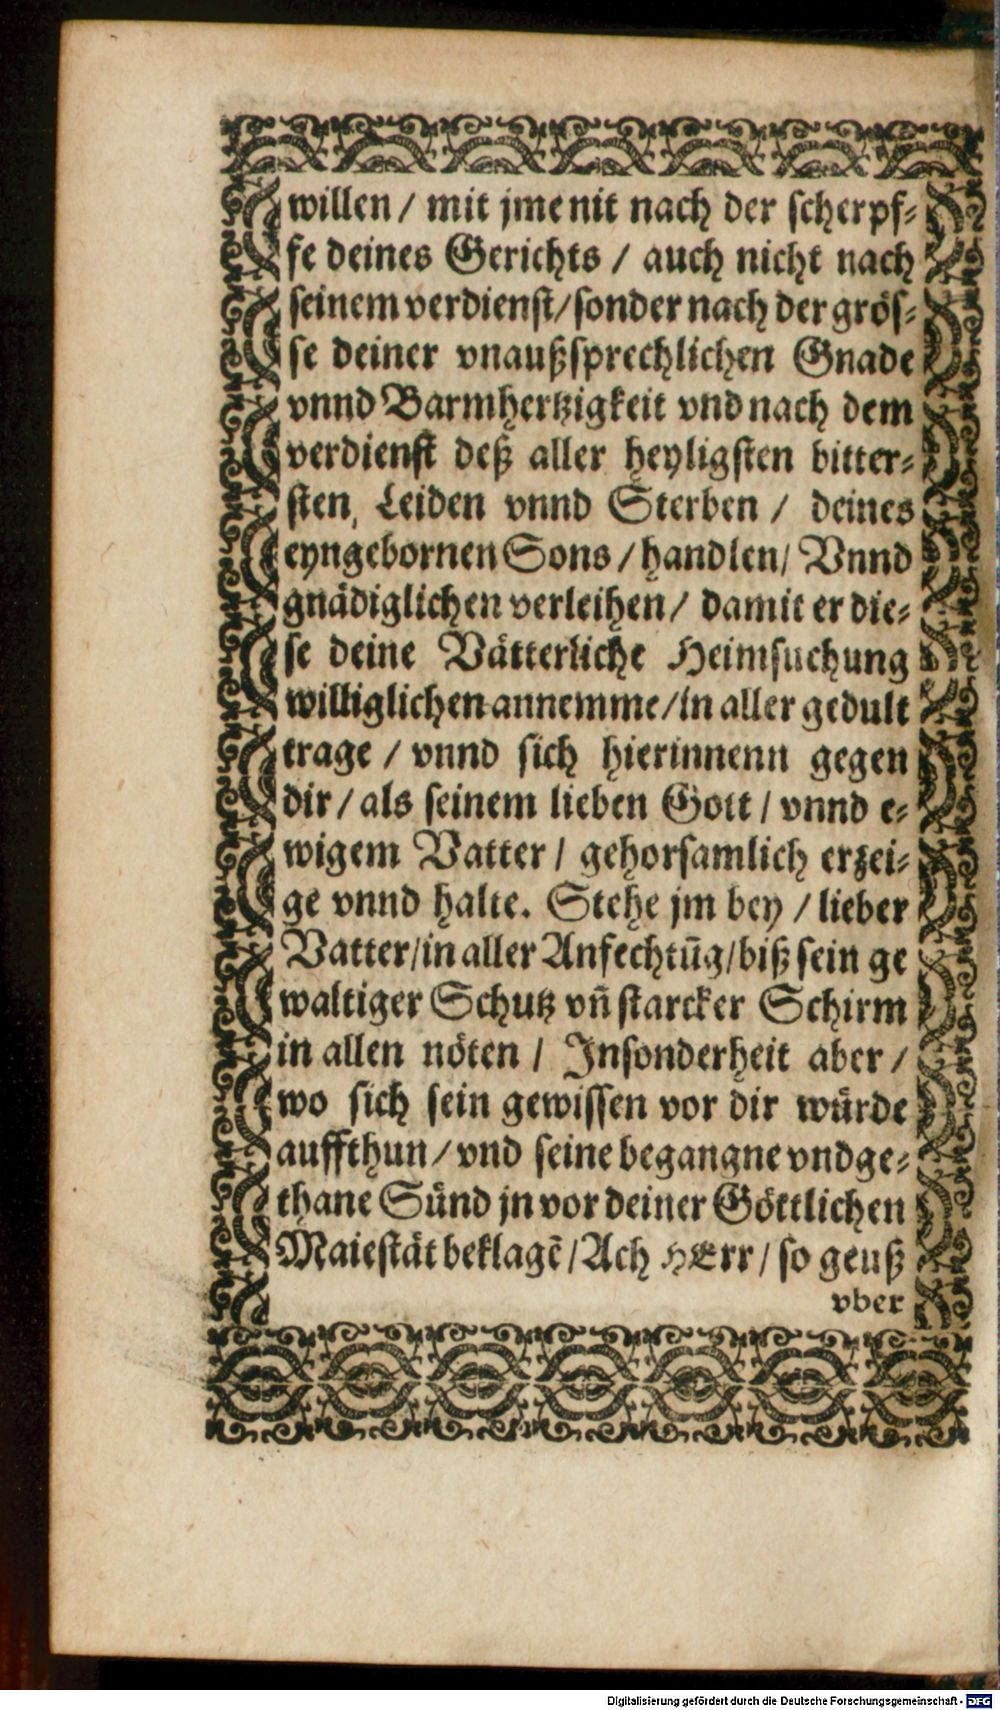 willen / mit jme nit nach der scherpf⸗
fe deines Gerichts / auch nicht nach
seinem verdienst/ sonder nach der grös⸗
se deiner vnaußsprechlichen Gnade
vnnd Barmhertzigkeit vnd nach dem
verdienst deß aller heyligsten bitter⸗
sten, Leiden vnnd Sterben / deines
eyngebornen Sons / handlen/ Vnnd
gnädiglichen verleihen / damit er die⸗
se deine Vätterliche Heimsuchung
williglichen annemme / in aller gedult
trage / vnnd sich hierinnenn gegen
dir / als seinem lieben Gott / vnnd e⸗
wigem Vatter / gehorsamlich erzei⸗
ge vnnd halte. Stehe jm bey / lieber
Vatter/ in aller Anfechtūg/ biß sein ge
waltiger Schutz vñ starcker Schirm
in allen nöten / Insonderheit aber /
wo sich sein gewissen vor dir würde
auffthun / vnd seine begangne vnd ge⸗
thane Sünd jn vor deiner Göttlichen
Maiestät beklagē / Ach HErr / so geuß
vber
Digitalisierung gefördert durch die Deutsche Forschungsgemeinschaft - DFG